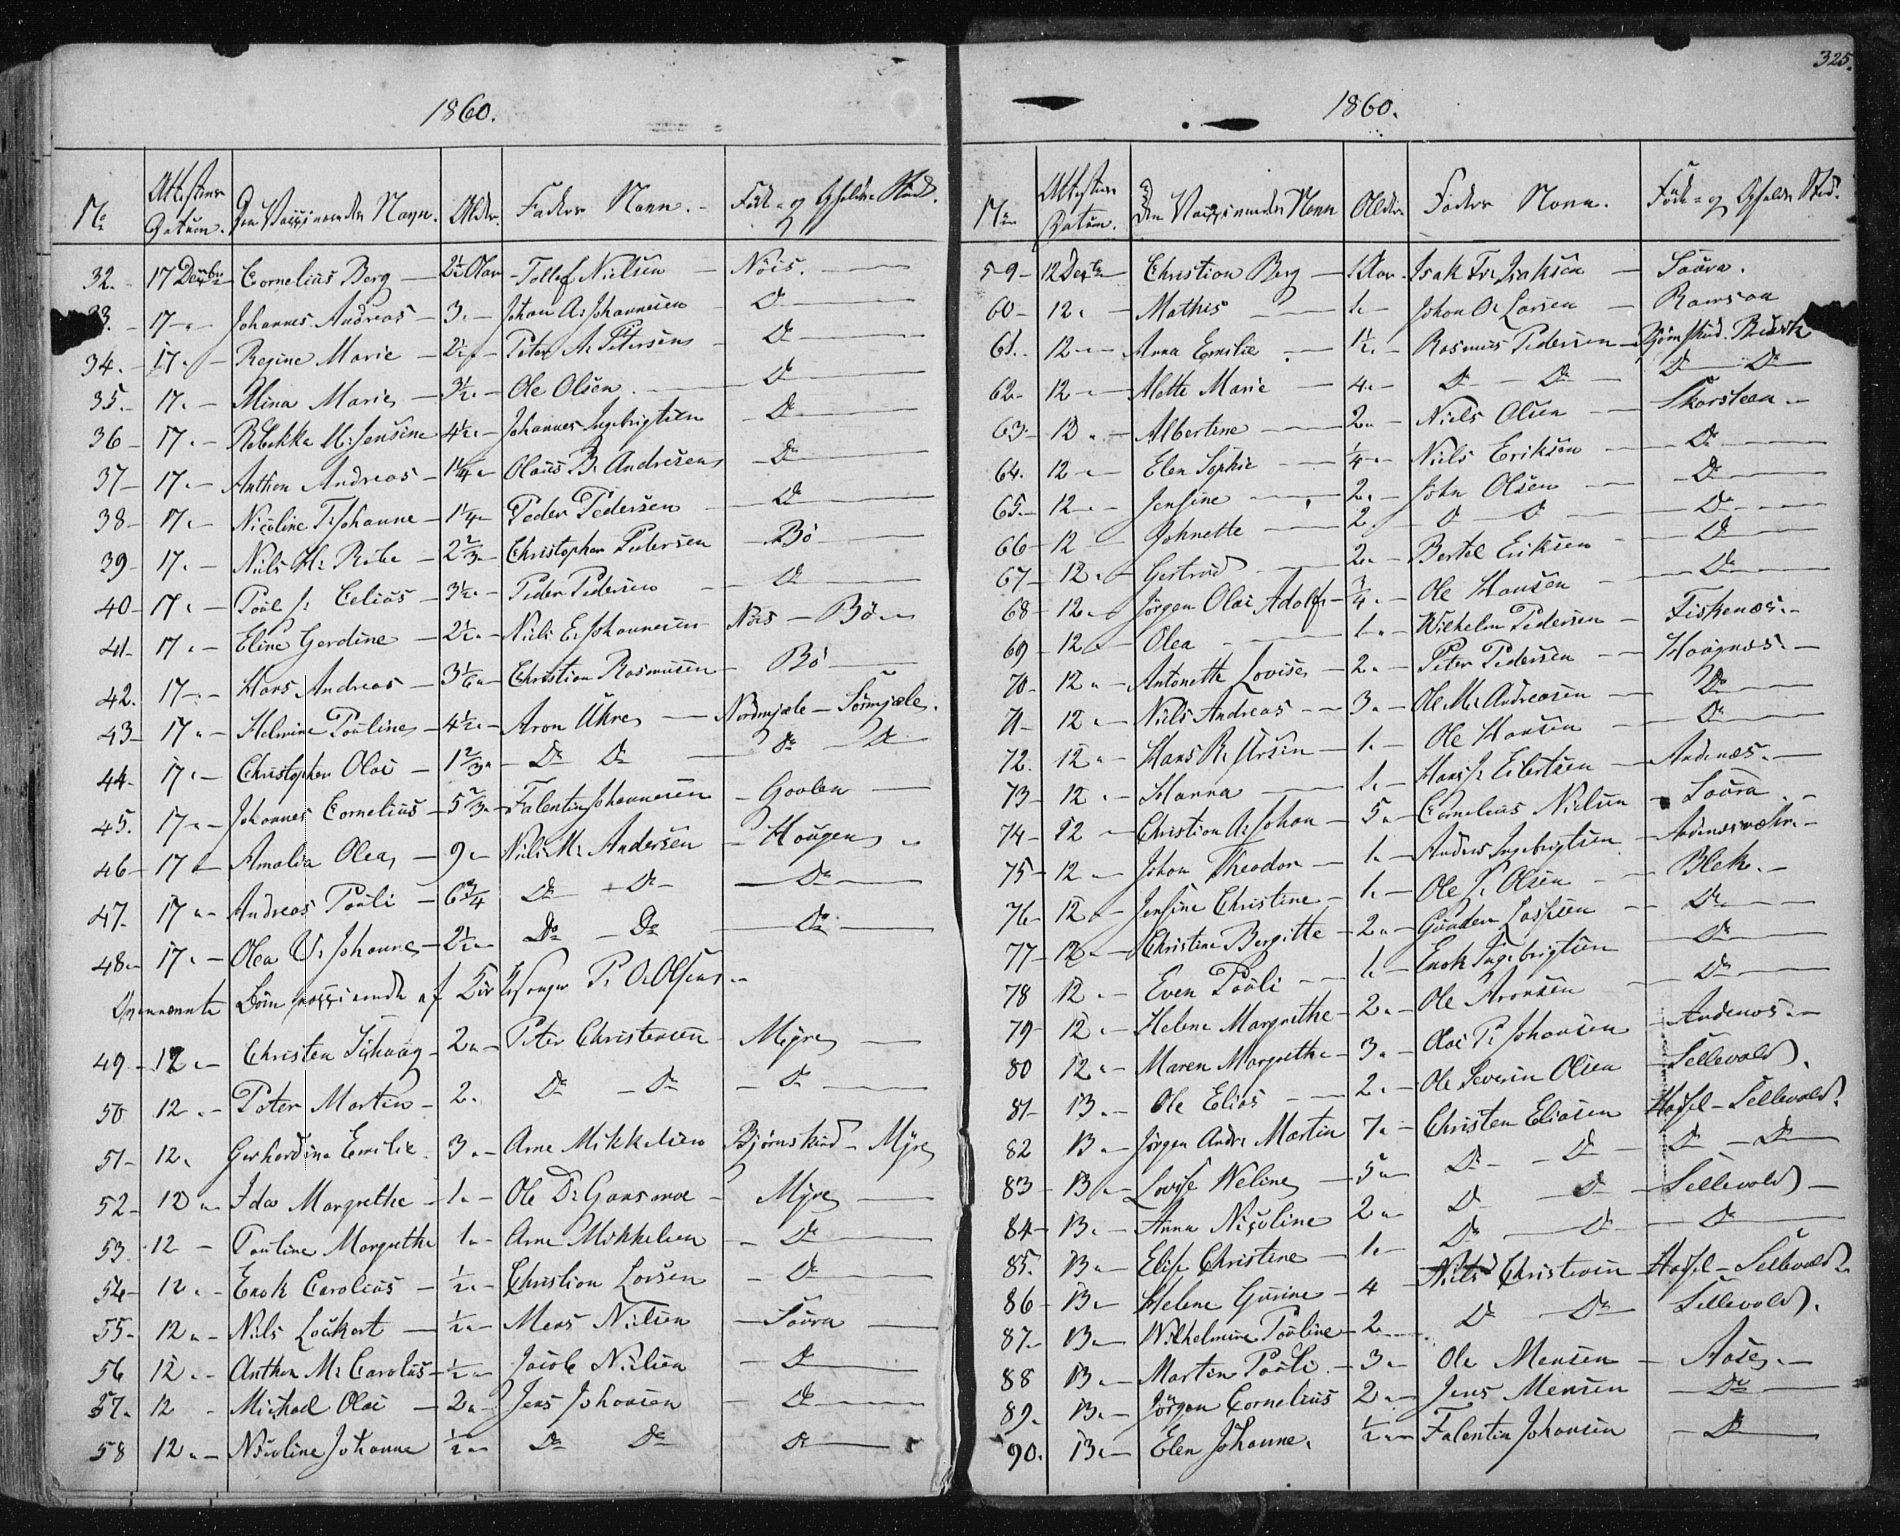 325.
1860.
No Attestens Datum. Den Vaxinerendes Navn. Alder. Faders Navn. Føde- og Opholds Sted.
32. 17 Decbr Cornelius Berg 2½ Aar Tollef Nielsen Nöis.
33. 17 Johannes Andreas 3 Johan A. Johannesen Do
34. 17 Regine Marie 2½ Peter A. Petersen Do
35. 17 Mina Marie 3½ Ole Olsen Do
36 17 Rebekka M. Jensine 4½ Johannes Ingebrigtsen Do
37 17 Anthon Andreas 1¼ Olaus B. Andresen Do
38 17 Nicoline T. Johanne 1¼ Peder Pedersen Do
39 17 Nils H. Ribe 2⅔ Christopher Pedersen Bö
40 17 Poul J. Celius 3½ Peder Pedersen Do
41 17 Eline Gerdine 2½ Niels E. Johannesen Nöis - Bö
42. 17 Hans Andreas 3⅙ Christian Rasmusen Bö
43 17 Helmine Pouline 4½ Aron Uhre Nordmjele - Sörmjele.
44 17 Christopher Olai 1⅔ Do Do Do Do
45. 17 Johannes Cornelius 5⅔ Falentin Johannesen Goolen
46 17 Amalia Olea 9 Nils M. Andersen Hougen
47. 17 Andreas Pouli 6¾ Do Do Do
48. 17 Olea V. Johanne 2½ Do Do Do
Ovennævnte Börn vaxinerede af Kirkesanger P. O. Olsen
49 12 Christen Schaag 2 Peter Christensen Myre
50 12 Peter Martin 2. Do Do Do
51 12. Gerhardine Emilie 3 Arne Mikkelsen Bjørnskind - Myre
52 12 Ida Margrethe 1 Ole D. Gansmoe Myre
53 12 Pauline Margrethe 1 Arne Mikkelsen Do
54 12 Enok Carolius ½ Christian Larsen Do
55 12 Nils Lockert ½ Mens Nielsen Saura
56 12 Anthon M. Carolus ½ Jacob Nielsen Do
57. 12 Michael Olai 2 Jens Johansen Do
58 12 Nicoline Johanne ½ Do Do Do
1860.
No Attestens Datum. Den Vaxinerendes Navn Alder. Faders Navn. Føde- og Opholds Sted.
59 12 Decbr Christian Berg 1 Aar Isak Fr. Isaksen Saura.
60 12. Mathis 1. Johan O. Larsen Ramsaa
61. 12 Anna Emilie 1½ Rasmus Pedersen Bjørnskind
62 12 Alette Marie 4. Do Do Do Do
63 12 Albertine 2 Niels Olsen Skarsteen
64. 12 Elen Sophie ¼ Niels Eriksen Do
65. 12 Jensine 2. John Olsen Do
66 12 Johnette 2. Do Do Do
67 12. Gertrud 2 Bertel Eriksen Do
68 12. Jørgen Olai Adolf ¾ Ole Hansen Do
69 12 Olea 1 Wilhelm Pedersen Fiskenæs.
70 12 Antonette Lovise 2 Peter Pedersen Haagnæs.
71 12 Niels Andreas 3 Ole M. Andreasen Do
72. 12 Hans R. Ursin 1. Ole Hansen Do
73 12 Hanna 1. Hans J. Eilertsen Andenæs.
74 12 Christian A. Johan 5 Cornelius Nielsen Saura
75 12 Johan Theodor 1. Anders Ingebrigtsen
76 12 Jensine Christine 1. Ole P. Olsen Blek.
77 12 Christine Bergitte 2 Gunder Lassesen Do
78 12. Even Pouli 1. Enok Ingebrigtsen Do
79 12. Helene Margrethe 2 Ole Aronsen Do
80 12. Maren Margrethe 3 Olai P. Johansen Andenæs.
81 13. Ole Elias 2 Ole Severin Olsen Sellevold.
82 13 Jørgen Andr. Martin 7. Christen Eliasen Hafsel - Sellevold.
83 13 Lovise Heline 5 Do Do Do Do
84 13. Anna Nicoline 2 Do Do Sellevold
85. 13 Elise Christine 1. Do Do Do
86 13 Helene Gurine 4 Niels Christensen Hafsel - Sellevold
87. 13 Wilhelmine Pouline 2 Do Do Sellevold.
88 13 Martin Pouli 3 Ole Mensen Aase
89. 13. Jørgen Cornelius 2 Jens Mensen Do
90. 13 Elen Johanne. ½ Falentin Johansen Do